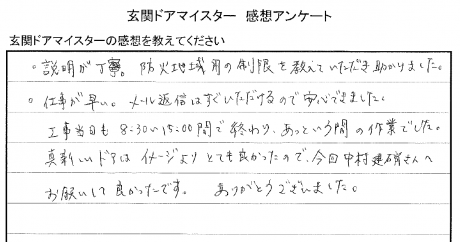 玄関ドアマイスター 感想アンケート
玄関ドアマイスターの感想を教えてください
。説明が丁寧。防火地域用の制限を教えていただき助かりました。
。仕事が早い。メール返信はすぐいただけるので安心できました。
工事当日も 8:30〜15:00間で終わり、あっという間の作業でした。
真新しいドアは イメージより とても良かったので、今回中村建硝さんへ
お願いして良かったです。 ありがとうございました。